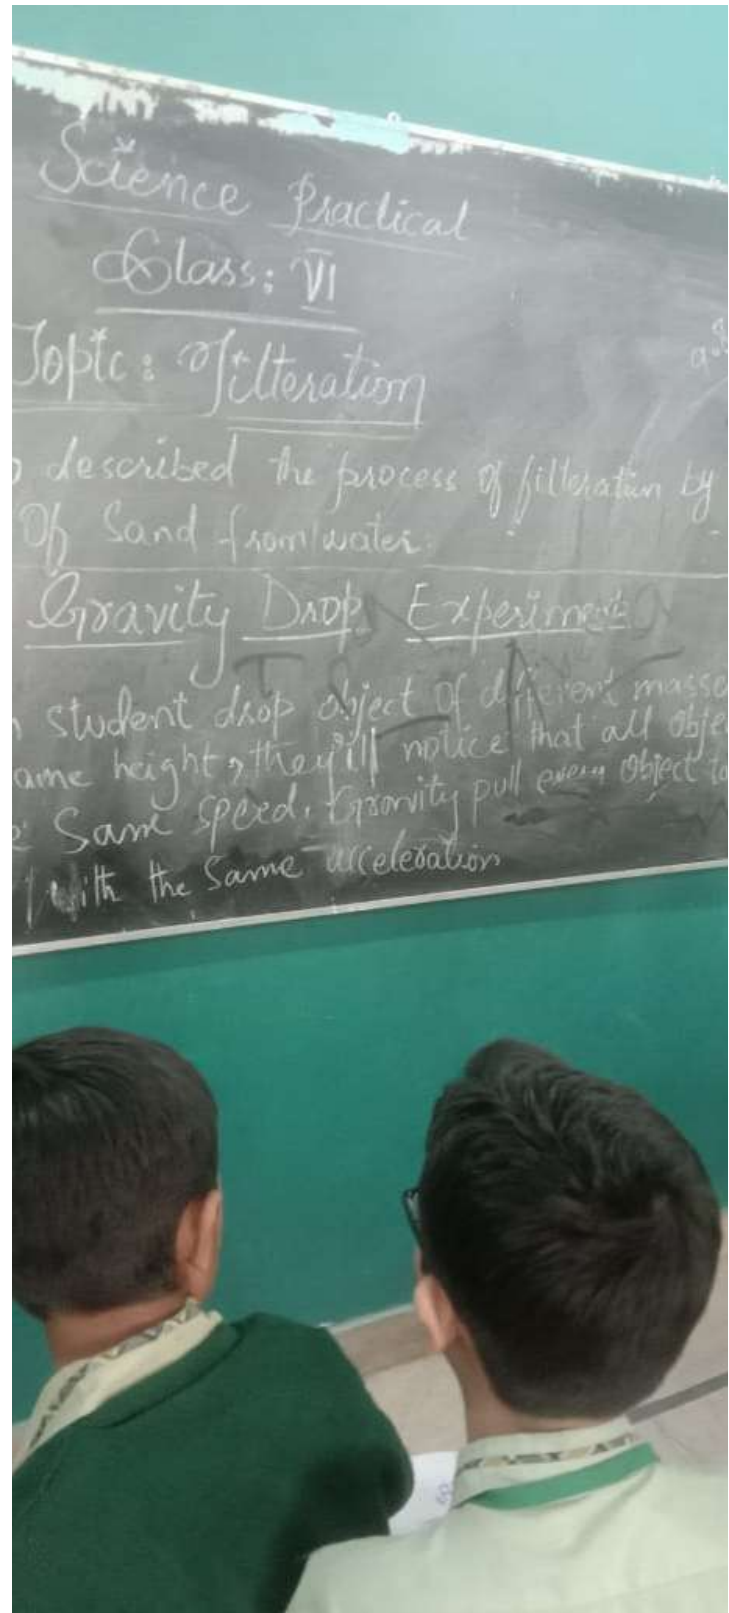 Science Practical
Class: VI
Topic: Filteration
described the process of filteration by
Of Sand from water.
Gravity Drop Experiment
student drop object of different masse
ame height, they'ill notice that all obje
Same speed. Gravity pull every object to
with the same acceleration